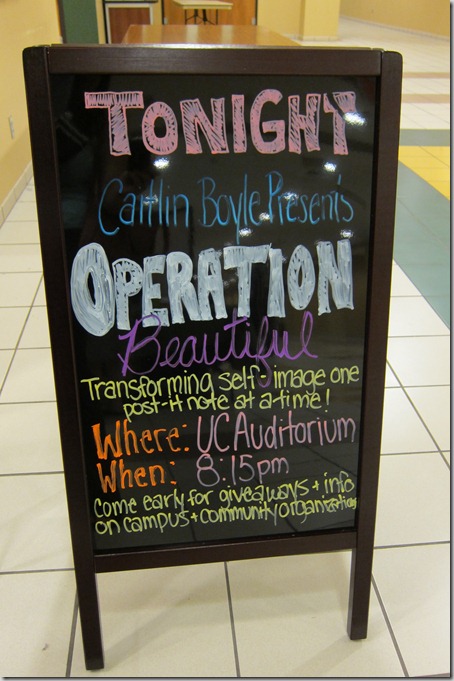 TONIGHT
Caitlin Boyle Presents
OPERATION
Beautiful
Transforming self-image one
post-it note at a time!
Where: UC Auditorium
When: 8:15pm
Come early for giveaways + info
on campus + community organizations